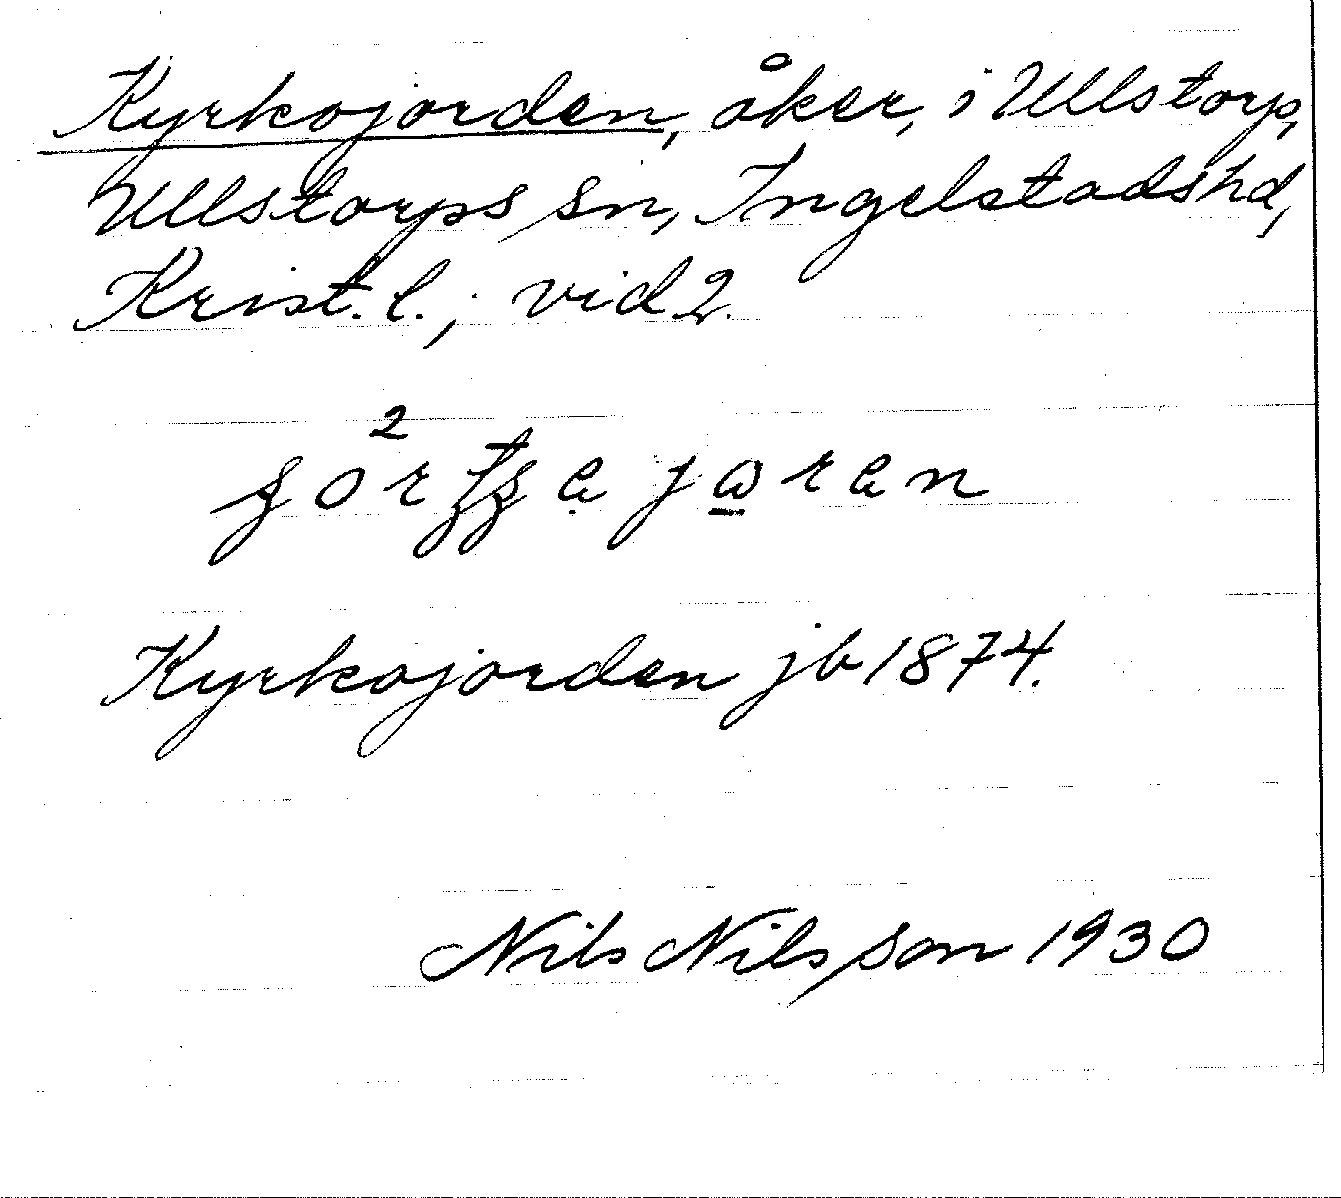 Kyrkojorden, åker, i Ullstorp,
Ullstorps sn, Ingelstads hd,
Krist. l.; vid 2.
2
Kyrkojorden jb 1874.
Nils Nilsson 1930